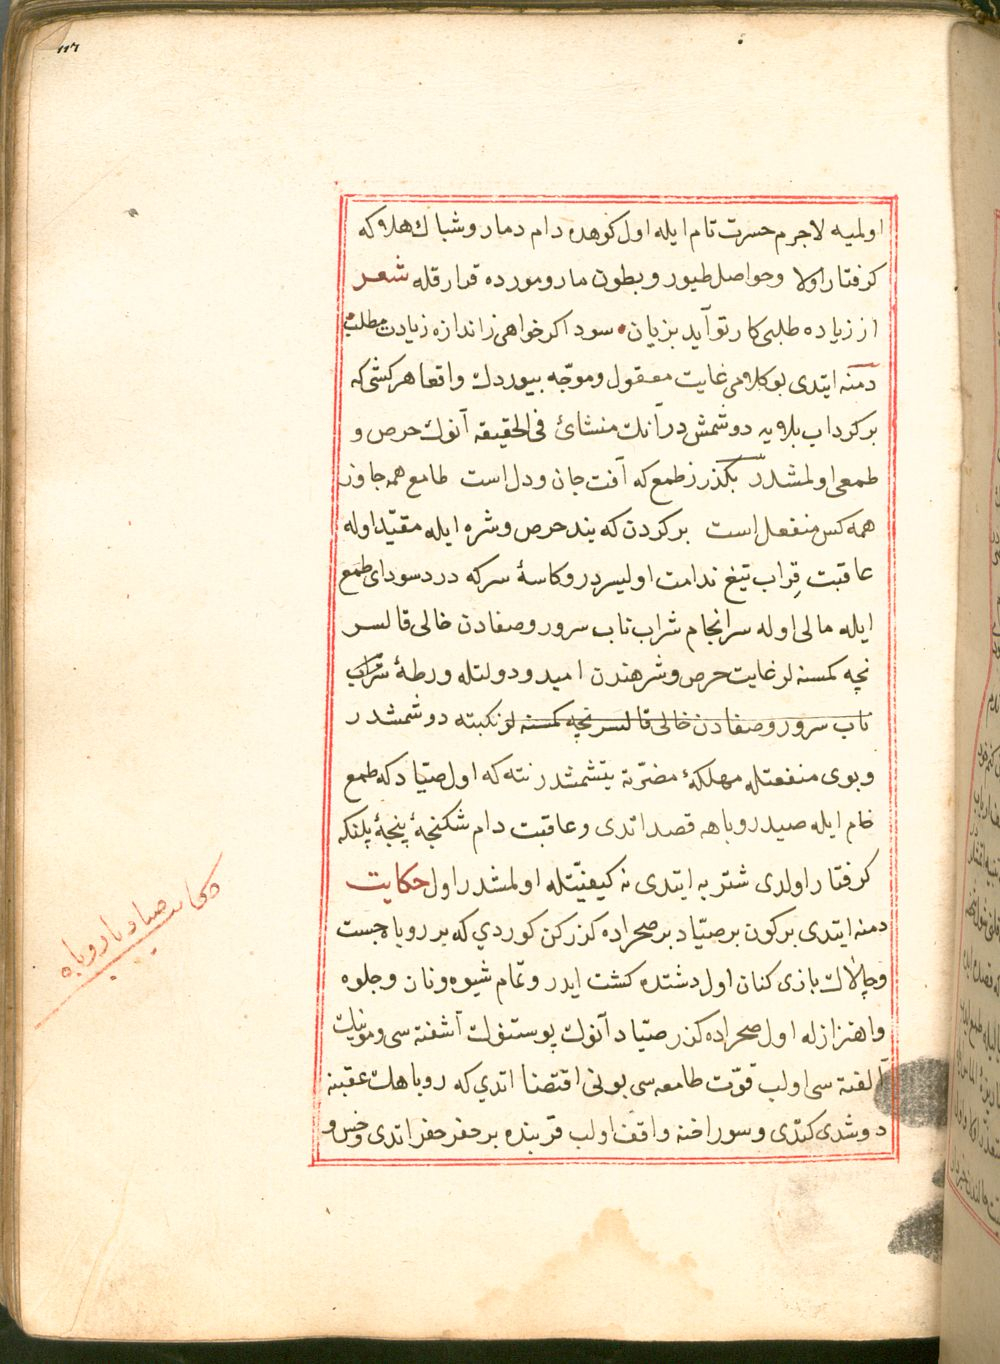 ١١٦
اولميه لاجرم حسرت تام ايله اول كوهده دام دمار وشباك هلاكه
كرفتار اولا وحواصل طيور وبطون مار ومورده قرار قله شعر
از زياده طلبى كار تو آيد بزيان سود اكر خواهى ز اندازه زيادت مطلب
دمنه ايتدى بو كلامى غايت معقول وموجّه بيوردك واقعا هر كشى كه
بر كرداب بلايه دوشمش در آنك منشائ فى الحقيقه آنوك حرص و
طمعى اولمشدر بكذر ز طمع كه آفت جان ودل است طامع همه جا وز
همه كس منفعل است بر كردن كه بند حرص وشره ايله مقيّد اوله
عاقبت قِراب تيغ ندامت اوليسردر وكاسهٔ سر كه درد سوداى طمع
ايله مالى اوله سرانجام شراب ناب سرور وصفادن خالى قالسر
نچه كمسنه لر غايت حرص وشرهندن اميد ودولتله ورطهٔ شراب
ناب سرور وصفادن خالى قالسر نچه كمسنه لر نكبته دوشمشدر
وبوى منفعتله مهلكهٔ مضرّته يتشمشدر نته كه اول صيّاد كه طمع
خام ايله صيد روباهه قصد اتدى وعاقبت دام شكنجهٔ پنجهٔ پلنكه
كرفتار اولدى شتربه ايتدى نه كيفيّتله اولمشدر اول حكايت
دمنه ايتدى بر كون بر صيّاد بر صحراده كزركن كوردي كه بر روباه جست
وچالاك بازى كنان اول دشتده كشت ايدر وتمام شيوه ونان وجلوه
واهتزازله اول صحراده كزر صيّاد آنوك پوستنوك آشفته سى ومونيك
آلفته سى اولب قوّت طامعه سى بونى اقتضا اتدي كه روباهك عقبنه
دوشدى كتدى وسوراخنه واقف اولب قربنده بر حفر حفر اتدى وخس و
حكايت صياد با روباه